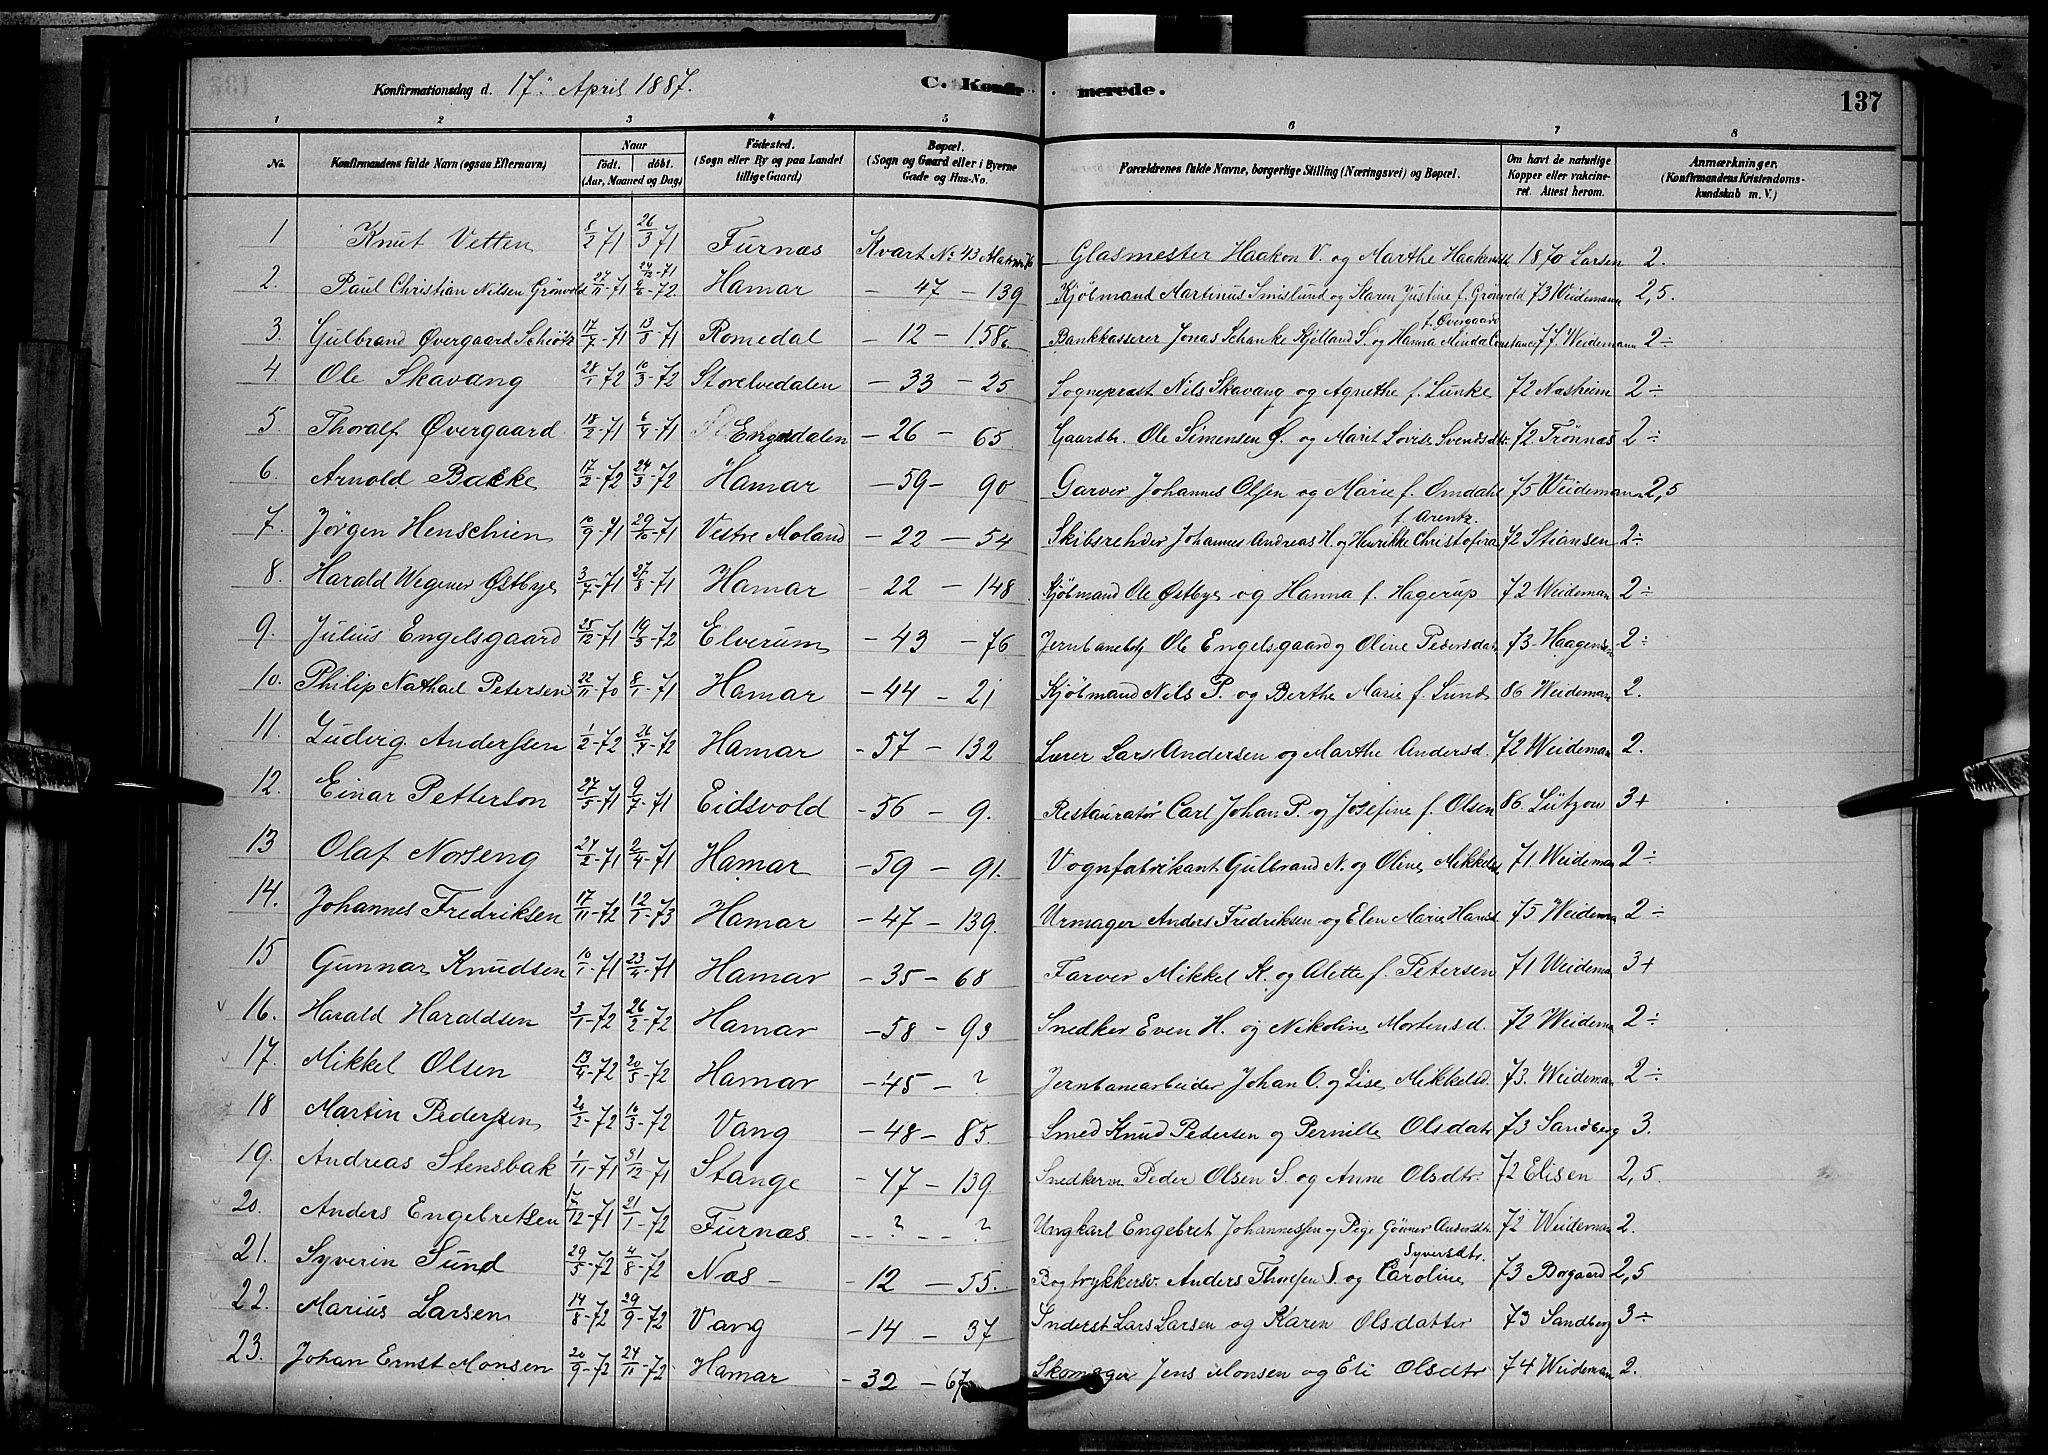 Konfirmationsdag d. 17. April 1887. C. Konfirmerede. 137
1 2 3 4 5 6 7 8
No. Konfirmandens fulde Navn (ogsaa Efternavn) Naar født. døbt. (Aar, Maaned og Dag) Fødested. (Sogn eller By og paa Landet tillige Gaard) Bopæl. (Sogn og Gaard eller i Byerne Gade og Hus-No. Forældrenes fulde Navne, borgerlige Stilling (Næringsvei) og Bopæl. Om havt de naturlige Kopper eller vakcineret. Attest herom. Anmærkninger. (Konfirmandens Kristendomskundskab m. V.)
1 Knut Vetten 8/2 71 26/3 71 Furnæs Kvart No. 43 Glasmester Haakon V. og Marthe 1870 Larsen 2.
2. Paul Christian Nilsen Grönvold 27/11-71 Hamar - 47 - 139 Kjøbmand Martinus Smislund og Karen Justine f. Grönvold 73 Weidemann 2,5.
3. Gulbrand Øvergaard Schiötz 17/7-71 13/8-71 Romedal - 12 - 158 Bankkasserer Jonas Schanke Kjelland S. og Hanna Minda Constance f. Øvergaard 77 Weidemann 2÷
4. Ole Skavang 28/1-72 10/3-72 Storelvedalen - 33 - 25 Sogneprest Nils Skavang og Agnethe f. Lunke 72 Næsheim 2÷
5. Thoralf Øvergaard 18/2-71 6/4-71 Engerdalen - 26 - 65 Gaardbr. Ole Simensen Ø. og Marit Lovise Svendsdtr. 72 Trönnæs 2÷
6. Arnold Bakke 17/2-72 24/3-72 Hamar - 59 - 90 Garver Johannes Olsen og Marie f. Omdahl 75 Weidemann 2,5
7. Jörgen Henschien 10/9-71 29/10-71 Vestre Moland - 22 - 54 Skibsreder Johannes Andreas H. og Henrikke Christofira f. Arentz. 72 Stiansen 2÷
8. Harald Wegener Østbye 3/7-71 27/8-71 Hamar - 22 - 148 Kjøbmand Ole Østbye og Hanna f. Hagerup 72 Weideman 2÷
9. Julius Engelsgaard 25/12-71 19/5-72 Elverum - 43 - 76 Jernbanebetj Ole Engelsgaard og Oline Pedersdatr 73 Haagensen 2÷
10. Philip Nathael Petersen 22/11-70 8/1-71 Hamar - 44 - 21 Kjøbmand Nils P. og Berthe Marie f. Lund 86 Weideman 2.
11. Ludvig Anderssen 1/2-72 26/4-72 Hamar - 57 - 132 Lærer Lars Andersen og Marthe Andersd. 72 Weideman 2.
12. Einar Petterson 27/5-71 9/7-71 Eidsvold - 56 - 9. Restauratör Carl Johan P. og Josefine f. Olsen 86. Lützow 3+
13 Olaf Norseng 24/2-71 2/4-71 Hamar - 59 - 91. Vognfabrikant Gulbrand N. og Oline Mikkelsd 71 Weideman 2÷
14. Johannes Fredriksen 17/11-72 12/1-73 Hamar - 47 - 139. Urmager Anders Fredriksen og Elen Marie Hansd 75 Weidema 2÷
15 Gunnar Knudsen 10/1-71 23/4-71 Hamar - 35 - 68 Farver Mikkel K. og Alette f. Petersen 71 Weidema 3+
16. Harald Haraldsen 3/1-72 26/2-72 Hamar - 58 - 93 Snedker Even H. og Nikoline Mortensd. 72 Weidema 2÷
17. Mikkel Olsen 13/4-72 20/5-72 Hamar - 45 - ? Jernbanearbeider Johan O. og Lise Mikkelsd. 73. Weideman 2÷
18 Martin Pederssen 20/2-72 10/3-72 Vang - 48 - 85. Smed Knud Pedersen og Pernille Olsdatr 73 Sandberg 3.
19. Andreas Stensbak 1/11-71 31/12-71 Stange - 47 - 139 Snedkersv. Peder Olsen S. og Anne Olsdtr. 72 Elisen 2,5.
20. Anders Engebretsen 17/12-71 21/1-72 Furnæs - ? - ? Ungkarl Engebret Johannessen og Pige Gönner Andersdtr 72 Weideman 2.
21. Syverin Sund 29/5-72 4/8-72 Næs - 12 - 55. Bogtrykkersv. Anders Thoresen S. og Caroline Syversdtr. 73 Borgaard 2,5
22. Marius Larsen 14/8-72 29/9-72 Vang - 14 - 37 Inderst Lars Larsen og Karen Olsdatter 73 Sandberg 3÷
23. Johan Ernst Monsen 20/9-72 24/11-72 Hamar - 32 - 67 Skomager Jens Monsen og Eli Olsdtr 74 Weideman 2.